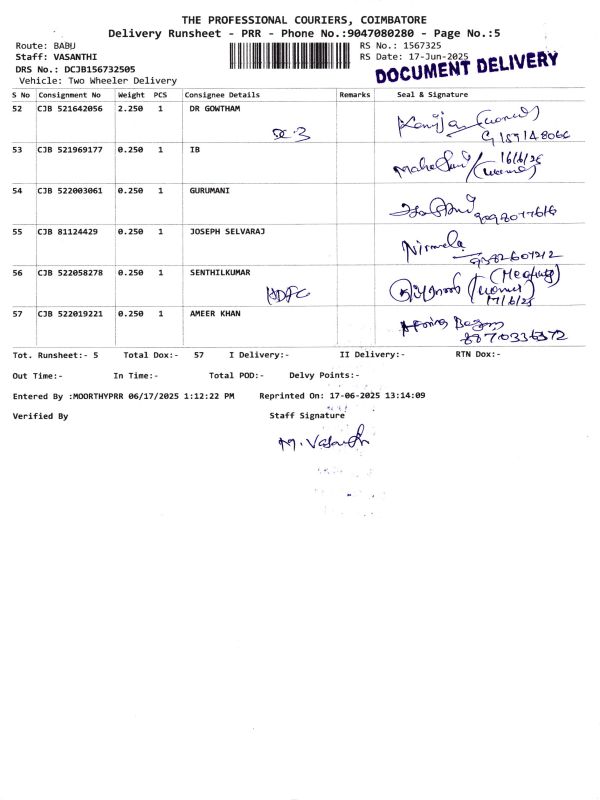 THE PROFESSIONAL COURIERS, COIMBATORE
Delivery Runsheet - PRR - Phone No.:9047080280 - Page No.:5
Route: BABU
RS No.: 1567325
Staff: VASANTHI
RS Date: 17-Jun-2025
DRS No.: DCJB156732505
Vehicle: Two Wheeler Delivery
DOCUMENT DELIVERY
S No Consignment No Weight PCS Consignee Details Remarks Seal & Signature
52 CJB 521642056 2.250 1 DR GOWTHAM
53 CJB 521969177 0.250 1 IB
16/6/25
54 CJB 522003061 0.250 1 GURUMANI
55 CJB 81124429 0.250 1 JOSEPH SELVARAJ Nirmala
56 CJB 522058278 0.250 1 SENTHILKUMAR
HDFC
17/6/25
57 CJB 522019221 0.250 1 AMEER KHAN
Tot. Runsheet:- 5 Total Dox:- 57 I Delivery:- II Delivery:- RTN Dox:-
Out Time:- In Time:- Total POD:- Delvy Points:-
Entered By :MOORTHYPRR 06/17/2025 1:12:22 PM Reprinted On: 17-06-2025 13:14:09
Verified By Staff Signature
M. Vasanth